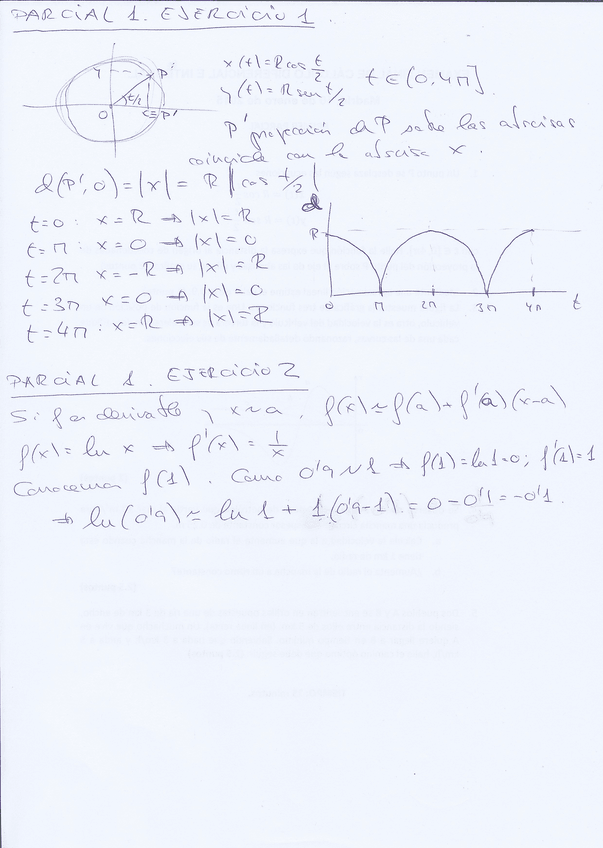 PARCIAL 1. EJERCICIO 1.
y
P
t/2
O
C≡P'
x(t)=R cos t/2
y(t)=R sen t/2
t ∈ (0, 4π].
P' proyección de P sobre las abscisas
coincide con la abscisa x.
d(P', O) = |x| = R |cos t/2|
t=0: x=R ⇒ |x|=R
t=π: x=0 ⇒ |x|=0
t=2π x=-R ⇒ |x|=R
t=3π x=0 ⇒ |x|=0
t=4π: x=R ⇒ |x|=R
d
R
0 π 2π 3π 4π t
PARCIAL 1. EJERCICIO 2
Si f es derivable y x≈a, f(x)≈f(a)+f'(a)(x-a)
f(x)=ln x ⇒ f'(x)=1/x
Conocemos f(1). Como 0'9≈1 ⇒ f(1)=ln1=0; f'(1)=1
⇒ ln(0'9)≈ ln 1 + 1.(0'9-1) = 0-0'1=-0'1.